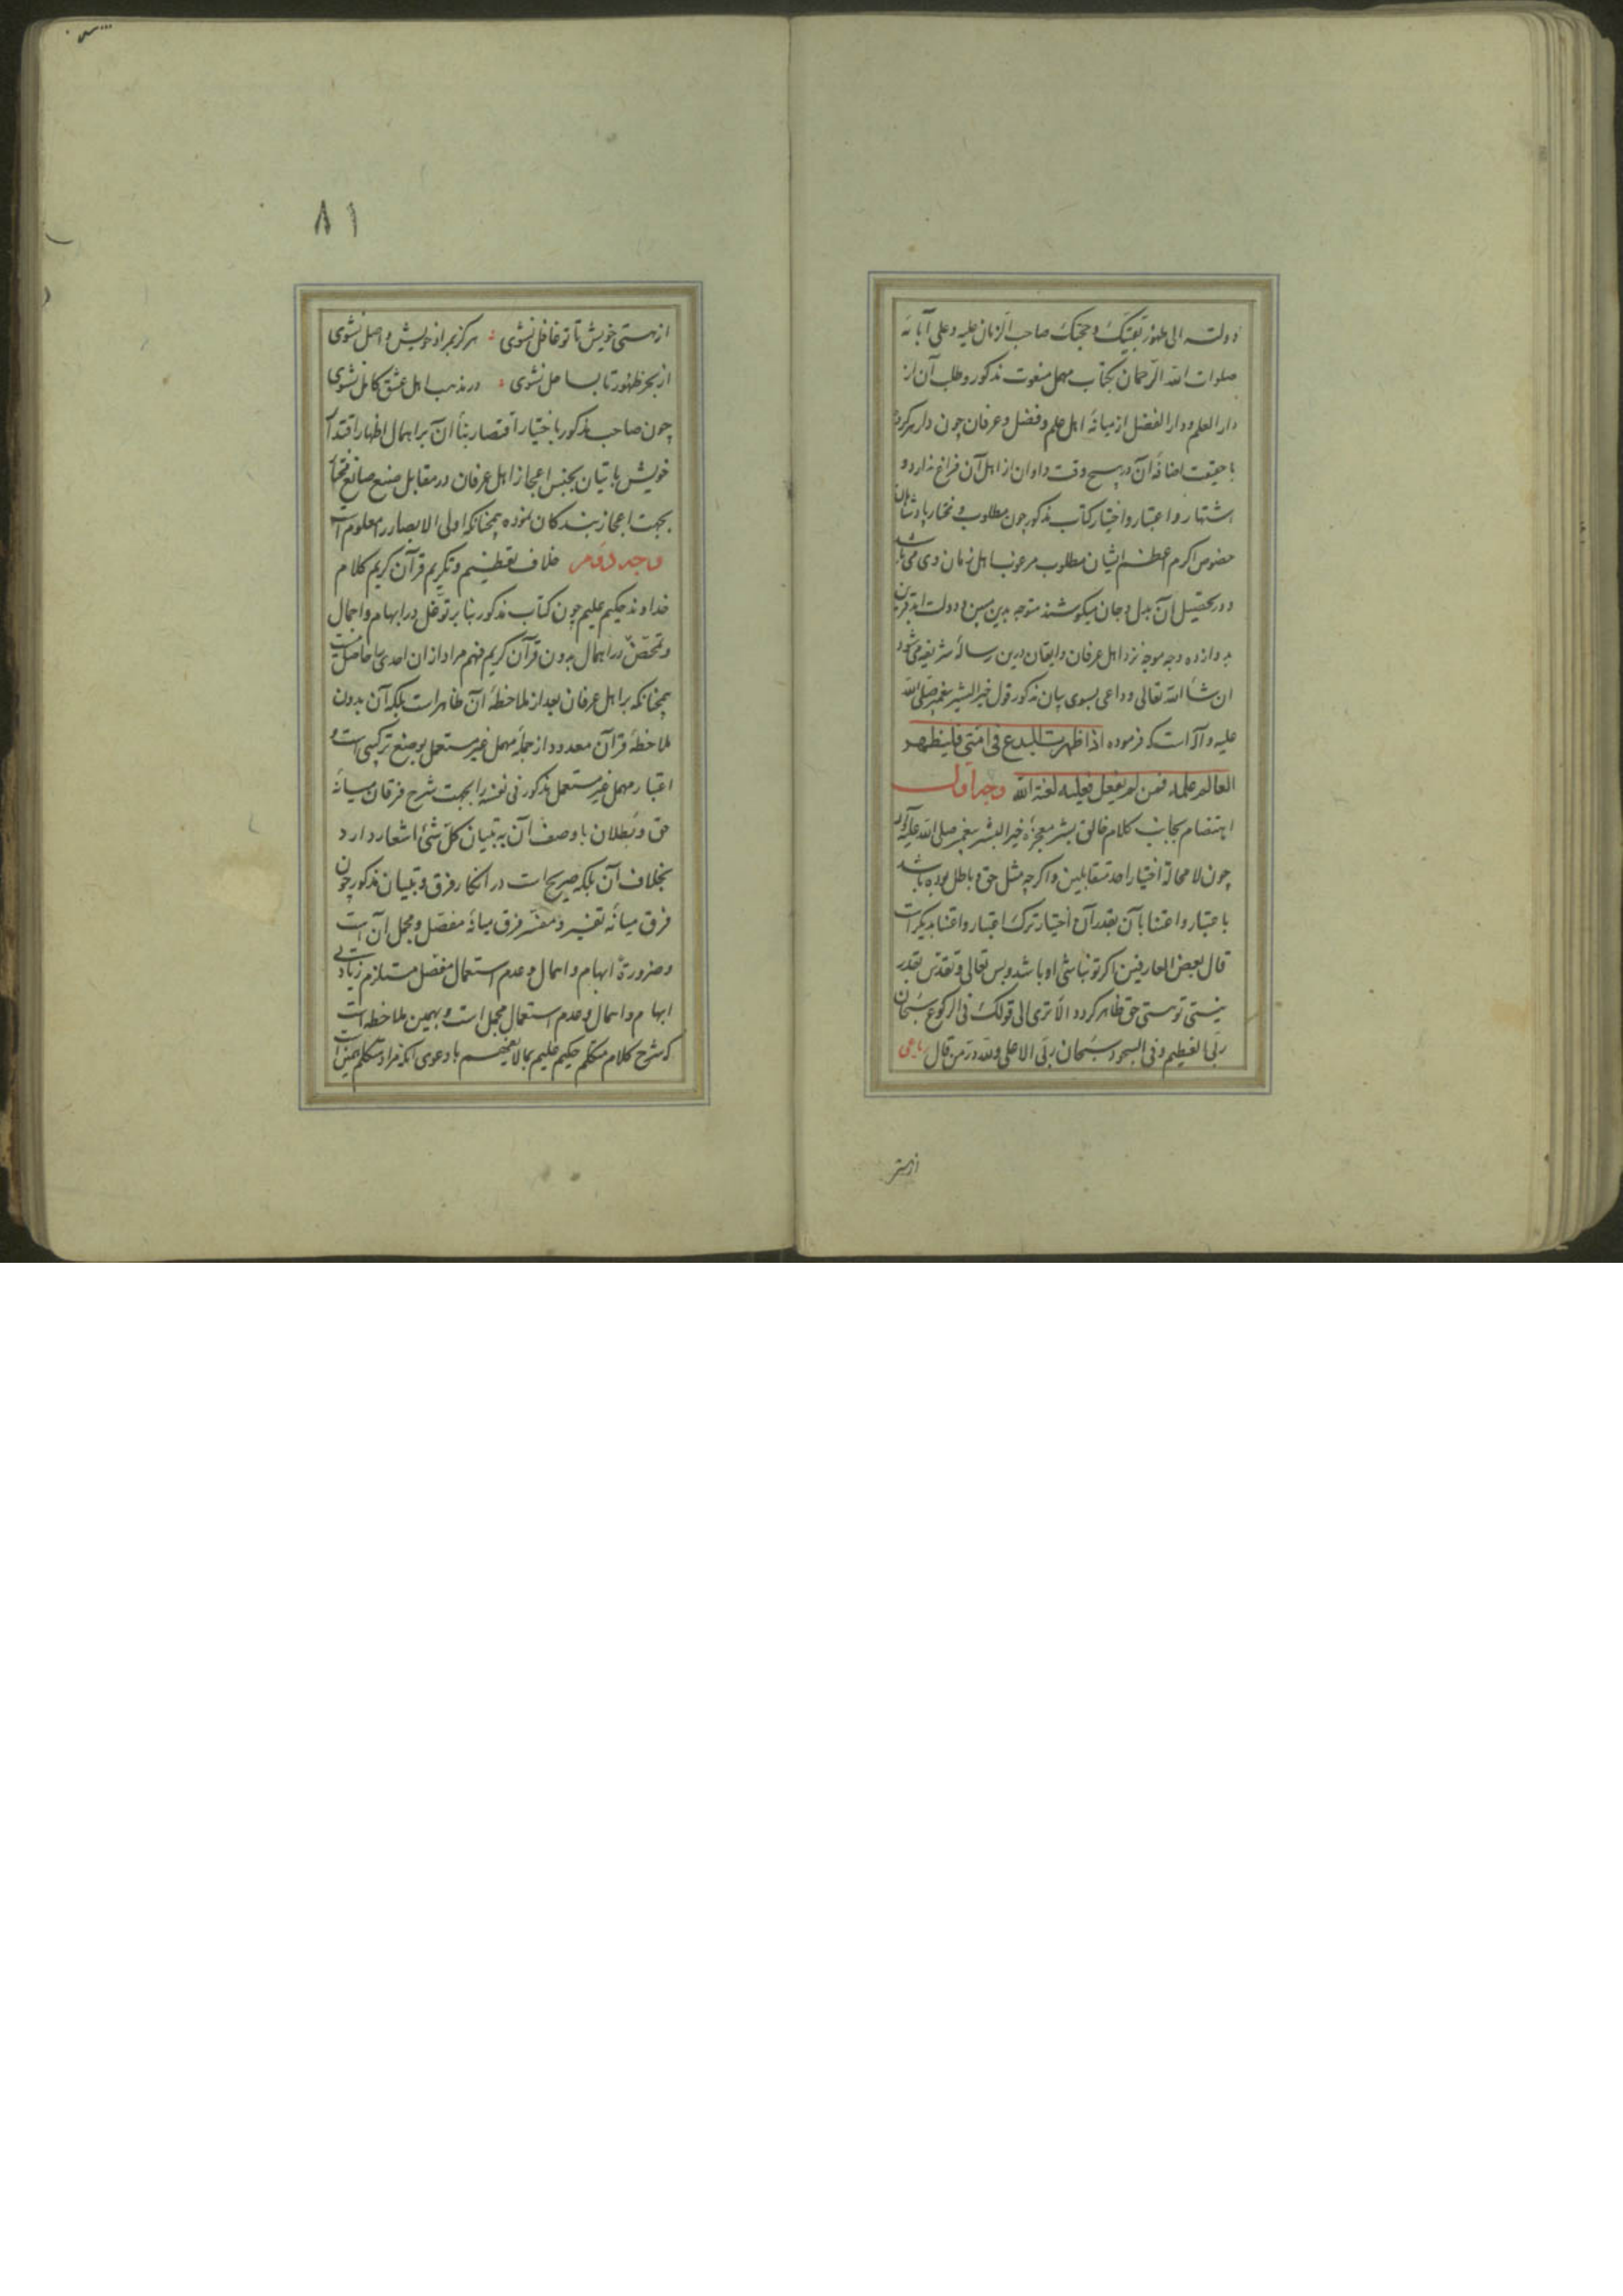 دولته الی ظهور بقیتک و حجتک صاحب الزمان علیه و علی آبائه
صلوات الله الرحمان بکتاب مهمل منعوت مذکور و طلب آن از
دار العلم و دار الفضل از میانهٔ اهل علم و فضل و عرفان چون
با حقیقت اضافهٔ آن در هیچ وقت و اوان از اهل آن فراغ ندارد و
اشتهار و اعتبار و اختیار کتاب مذکور چون مطلوب و مختار پادشاهان
خصوص اکرم اعظم ایشان مطلوب مرغوب اهل زمان وی می باشد
و در تحصیل آن بدل و جان میکوشند متوجه بدین و دولت ابد قرین
به دوازده وجه موجه نزد اهل عرفان و ایقان درین رسالهٔ شریفه می شود
ان شاء الله تعالی و داعی بسوی بیان مذکور قول خیر البشر پیغمبر صلی الله
علیه و آله است که فرموده اذا ظهرت البدع فی امتی فلیظهر
العالم علمه فمن لم یفعل فعلیه لعنة الله وجه اول
اهتضام بجانب کلام خالق بشر معجزهٔ خیر البشر پیغمبر صلی الله علیه و آله
چون لا محالة اختیار احد متقابلین و اکرچه مثل حق و باطل بوده باشد
با عتبار و اعتنا بآن بقدر آن اختیار ترک اعتبار و اعتنا بدیکر است
قال بعض العارفین اکر تو نباشی او باشد و بس تعالی و تقدس بقدر
نیستی تو هستی حق ظاهر کردد الا تری الی قولک فی الرکوع سبحان
ربی العظیم و فی السجود سبحان ربی الاعلی و لله در من قال رباعی
از هستی
٨١
از هستی خویش تا تو غافل نشوی هرکز بمراد خویش واصل نشوی
از بحر ظهور تا بساحل نشوی در مذهب اهل عشق کامل نشوی
چون صاحب مذکور با ختیار اقتصار بنا آن بر اهمال اظهار اقتدار
خویش باتیان بجنس اعجاز اهل عرفان در مقابل صنع صانع
بجهت اعجاز بندکان نموده همچنانکه اولی الابصار را معلوم است
وجه دوم خلاف تعظیم و تکریم قرآن کریم کلام
خداوند حکیم علیم چون کتاب مذکور بنا بر توغل در ابهام و اجمال
و تمحض در اهمال بدون قرآن کریم فهم مراد از ان احدی را حاصل نیست
همچنانکه بر اهل عرفان بعد از ملاحظهٔ آن ظاهر است بلکه آن بدون
ملاحظهٔ قرآن معدود از جملهٔ مهمل غیر مستعمل بوضع ترکیبی است و
اعتبار مهمل غیر مستعمل مذکور فی نفسه را بجهت شرح فرقان میانهٔ
حق و بطلان با وصف آن به تبیان کل شیء اشعار دارد
بخلاف آن بلکه صریح است در انکار فرق و تبیان مذکور چون
فرق میانهٔ تفسیر و مفسر فرق میانهٔ مفصل و مجمل آن است
و ضرورة ابهام و اهمال و عدم استعمال مفصل مستلزم زیادتی
ابهام و اهمال و عدم استعمال مجمل است و بهمین ملاحظه است
که شرح کلام متکلم حکیم علیم بمالا یفهم با دعوی انکه مراد متکلم همین است